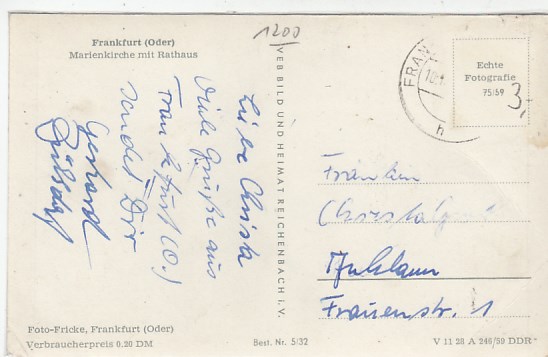 Frankfurt (Oder)
Marienkirche mit Rathaus
1200
Liebe Christa
Viele Grüße aus
Frankfurt (O.)
sendet Dir
Gerhard
VEB BILD UND HEIMAT REICHENBACH I. V.
FRAN
Echte
Fotografie
75/59
3,
h
Fräulein
Frauenstr. 1
Foto-Fricke, Frankfurt (Oder)
Verbraucherpreis 0.20 DM
Best. Nr. 5/32
V 11 28 A 246/59 DDR